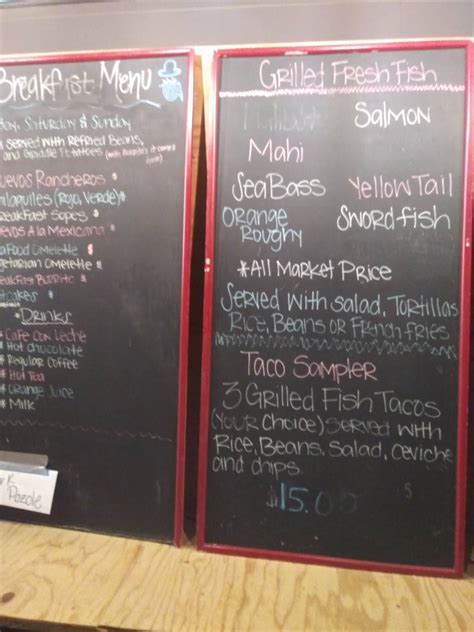 Breakfast Menu
Saturday & Sunday
served with Refried Beans,
and Griddle Potatoes
Huevos Rancheros
Chilaquiles (Roja, Verde)
Breakfast Sopes
Huevos A la Mexicana
Seafood Omelette
Vegetarian Omelette
Breakfast Burrito
Drinks
* Cafe con Leche
* Hot chocolate
* Regular Coffee
* Hot Tea
* Orange Juice
* Milk
Pozole
Grilled Fresh Fish
Salmon
Mahi
Sea Bass Yellow Tail
Orange Roughy Swordfish
*All Market Price
Served with Salad, Tortillas
Rice, Beans or French fries
Taco Sampler
3 Grilled Fish Tacos
(Your Choice) served with
Rice, Beans, Salad, Ceviche
and chips
$15.00